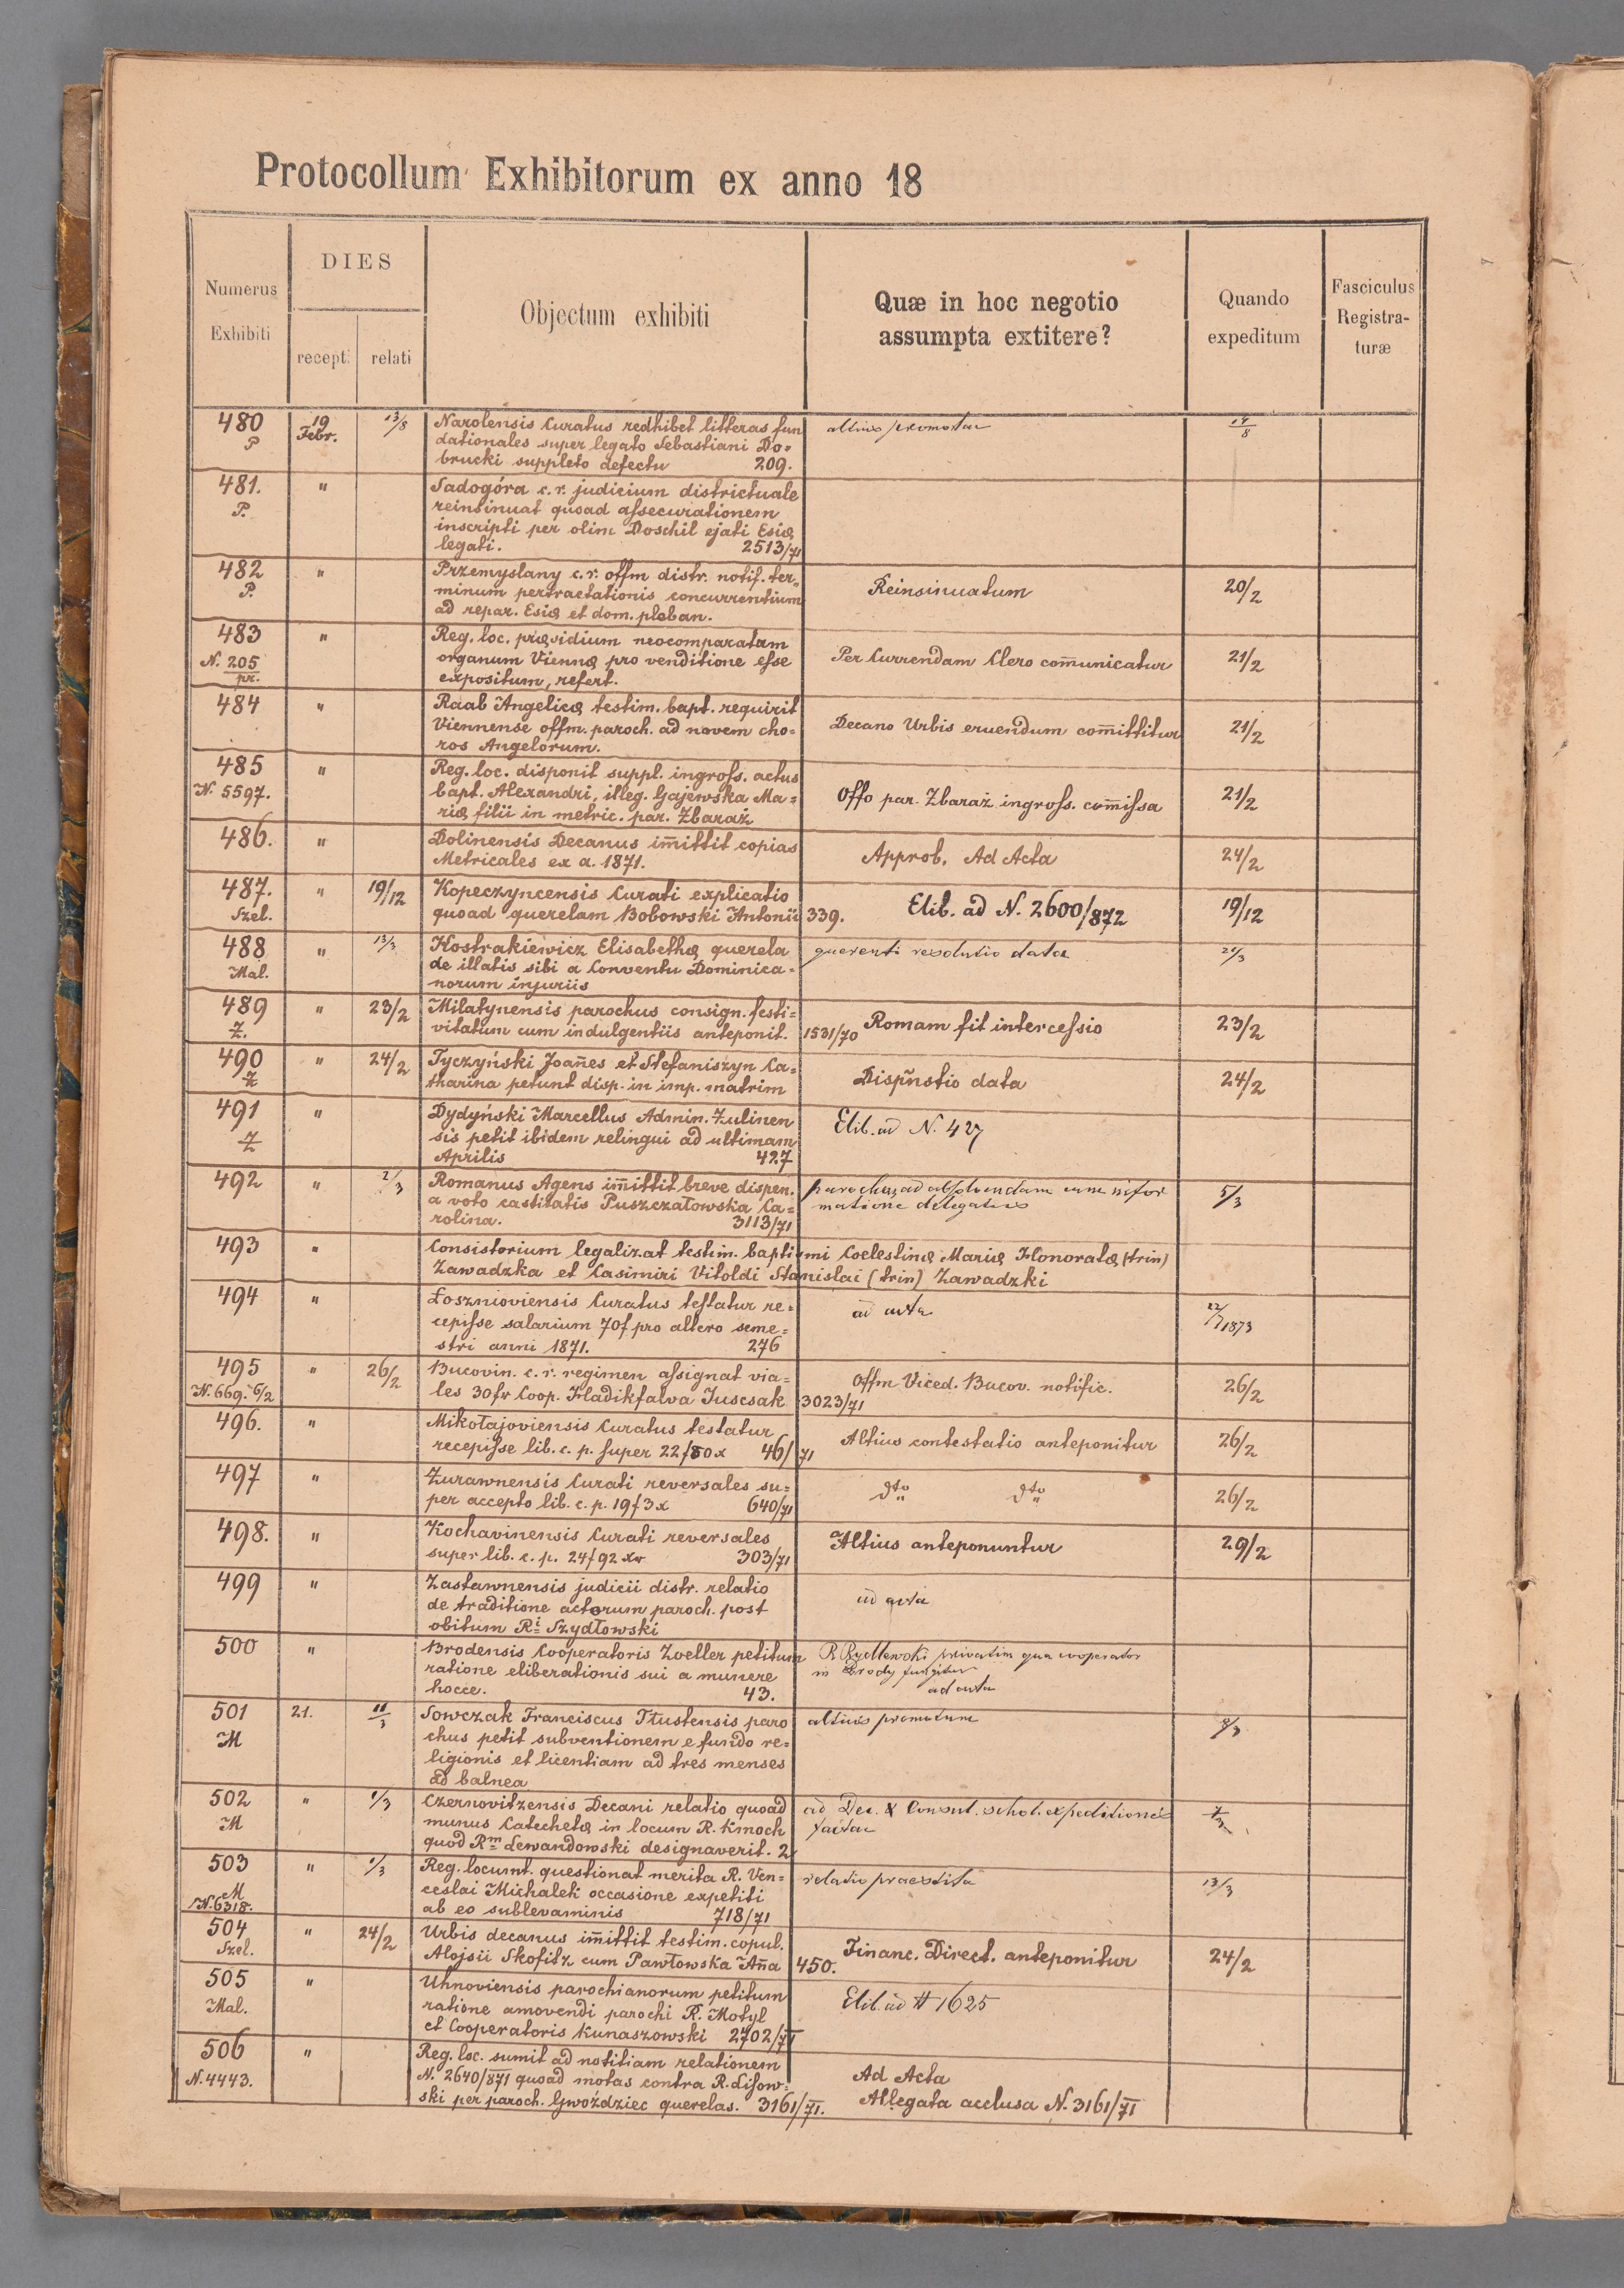 Protocollum Exhibitorum ex anno 18
Numerus Exhibiti
DIES
recept.
relati
Objectum exhibiti
Quæ in hoc negotio
assumpta extitere?
Quando
expeditum
Fasciculus
Registra-
turæ
480 P 19 Febr. 13/8 Narolensis Curatus redhibet litteras fun altius promotae 14/8
dationales super legato Sebastiani Do=
brucki suppleto defectu 209.
481. P. " Sadogóra c. r. judicium districtuale
reinsinuat quoad assecurationem
inscripti per olim Doschil ejati Esiæ
legati. 2513/71
482 P. " Przemyslany c. r. offm distr. notif. ter= Reinsinuatum 20/2
minum pertractationis concurrentium
ad repar. Esiæ et dom. pleban.
483 N. 205 pr. " Reg. loc. præsidium neocomparatam
organum Viennæ pro venditione esse Per Currendam Clero com̄unicatur 21/2
expositum, refert.
484 " Raab Angelicæ testim. bapt. requirit
Viennense offm. paroch. ad novem cho= Decano Urbis eruendum com̄ittitur 21/2
ros Angelorum.
485 N. 5597. " Reg. loc. disponit suppl. ingross. actus
bapt. Alexandri, illeg. Gajewska Ma= Offo par. Zbaraż ingross. com̄issa 21/2
riæ filii in metric. par. Zbaraż
486. " Dolinensis Decanus im̄ittit copias
Metricales ex a. 1871. Approb. Ad Acta 24/2
487. Szel. " 19/12 Kopeczyncensis Curati explicatio
quoad querelam Bobowski Antonii 339. Elib. ad N. 2600/872 19/12
488 Mal. " 13/3 Kostrakiewicz Elisabethæ querela querenti resolutio data 21/3
de illatis sibi a Conventu Dominica=
norum injuriis
489 Z. " 23/2 Milatynensis parochus consign. festi=
vitatum cum indulgentiis anteponit. 1531/70 Romam fit intercessio 23/2
490 Z " 24/2 Tyczyński Joan̄es et Stefaniszyn Ca=
tharina petunt disp. in imp. matrim Disp̄nstio data 24/2
491 Z " Dydyński Marcellus Admin. Zulinen
sis petit ibidem relinqui ad ultimam Elib. ad N. 427
Aprilis 427
492 " 2/3 Romanus Agens im̄ittit breve dispen. parochus ad absolvendam cum infor 5/3
a voto castitatis Puszczatowska Ca= matione delegatus
rolina. 3113/71
493 " Consistorium legalizat testim. baptismi Coelestinæ Mariæ Honoratæ (trin)
Zawadzka et Casimiri Vitoldi Stanislai (trin) Zawadzki
494 " Łosznioviensis Curatus testatur re= ad acta 22/7 1873
cepisse salarium 70f pro altero seme=
stri anni 1871. 276
495 N. 669. 6/2 " 26/2 Bucovin. c. r. regimen assignat via= Offm Viced. Bucov. notific. 26/2
les 30fr Coop. Hladikfalva Juscsak 3023/71
496. " Mikołajoviensis Curatus testatur
recepisse lib. c. p. super 22f80x 46/71 Altius contestatio anteponitur 26/2
497 " Żurawnensis Curati reversales su=
per accepto lib. c. p. 19f3x 640/71 dto dto 26/2
498. " Kochavinensis Curati reversales Altius anteponuntur 29/2
super lib. c. p. 24f92xr 303/71
499 " Zastawnensis judicii distr. relatio
de traditione actorum paroch. post ad acta
obitum Ri Szydłowski
500 " Brodensis Cooperatoris Zoeller petitum R Rydlewski privatim qua cooperator
ratione eliberationis sui a munere in Brody fungitur
hocce. 43. ad acta
501 M 21. 11/3 Sowczak Franciscus Tłustensis paro altius promotum 9/3
chus petit subventionem e fundo re=
ligionis et licentiam ad tres menses
ad balnea
502 M " 1/3 Czernovitzensis Decani relatio quoad ad Dec. & Consul. schol. expeditiones 7/3
munus Catechetæ in locum R. Kmoch factae
quod Rm Lewandowski designaverit. 2
503 M N. 6318. " 1/3 Reg. locumt. questionat merita R. Ven= relatio praestita 13/3
ceslai Michalek occasione expetiti
ab eo sublevaminis 718/71
504 Szel. " 24/2 Urbis decanus im̄ittit testim. copul.
Alojsii Skofitz cum Pawłowska An̄a 450. Financ. Direct. anteponitur 24/2
505 Mal. " Uhnoviensis parochianorum petitum
ratione amovendi parochi R. Motyl Elib. ad # 1625
et Cooperatoris Kunaszowski 2702/71
506 N. 4443. " Reg. loc. sumit ad notitiam relationem
N. 2640/871 quoad motas contra R. Lisow= Ad Acta
ski per paroch. Gwoździec querelas. 3161/71. Allegata acclusa N. 3161/71